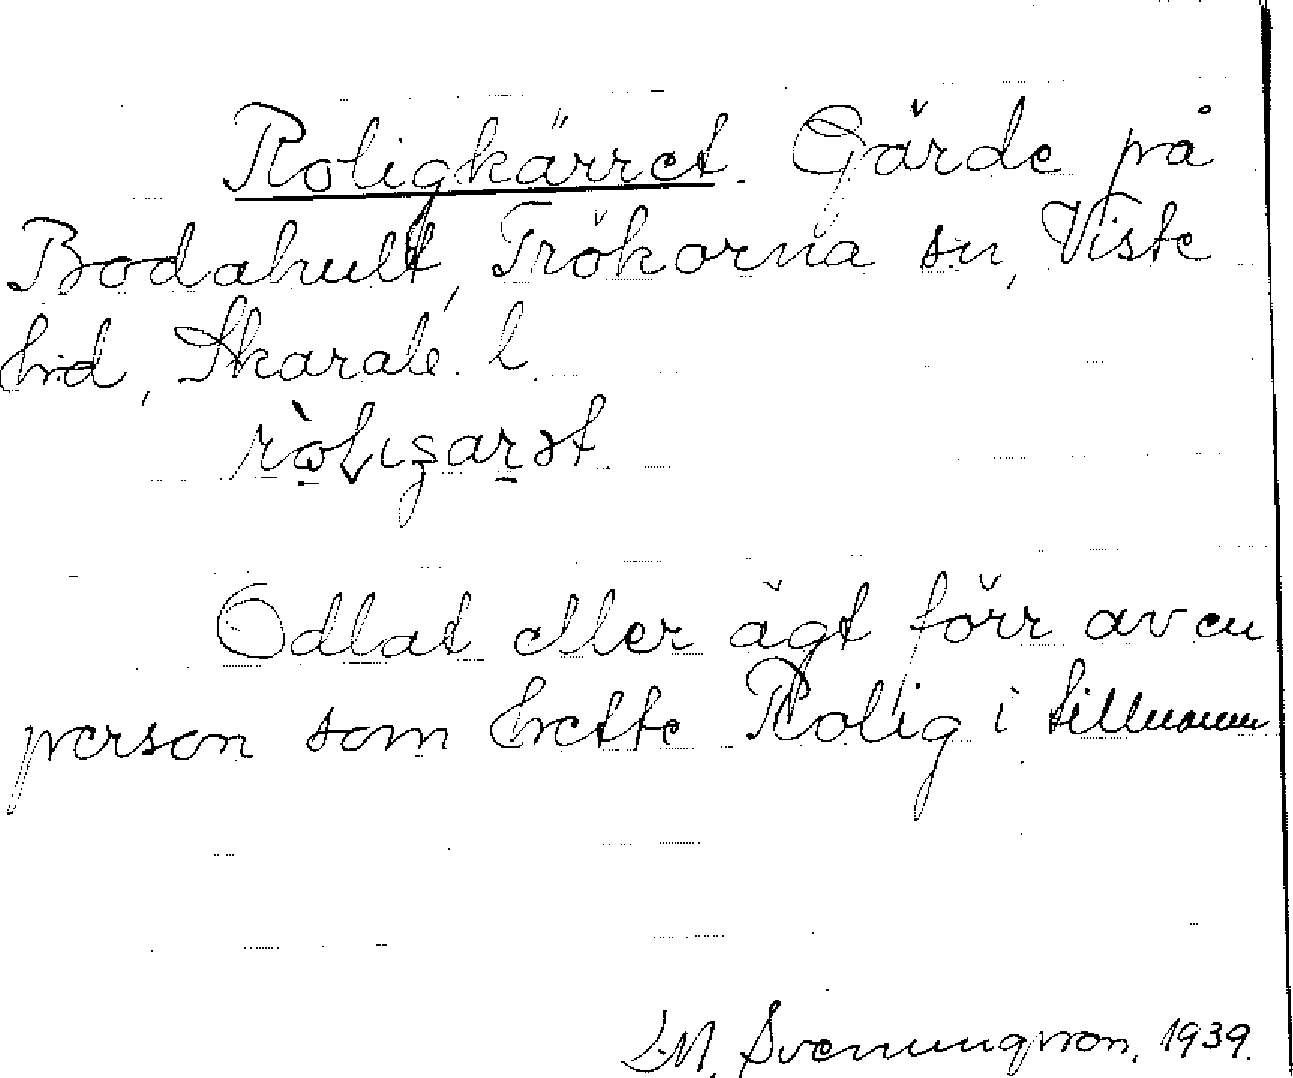 Roligkärret. Gärde på
Bodahult, Trökörna sn, Viste
hrd, Skarab. l.

Odlat eller ägt förr av en
person som hette Rolig i tillnamn
Svenungsson, 1939.